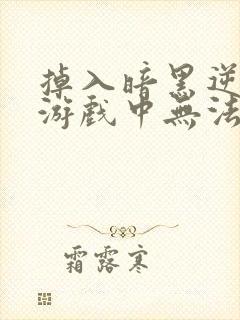 掉入暗黑逆
游戲中無法
霜露寒